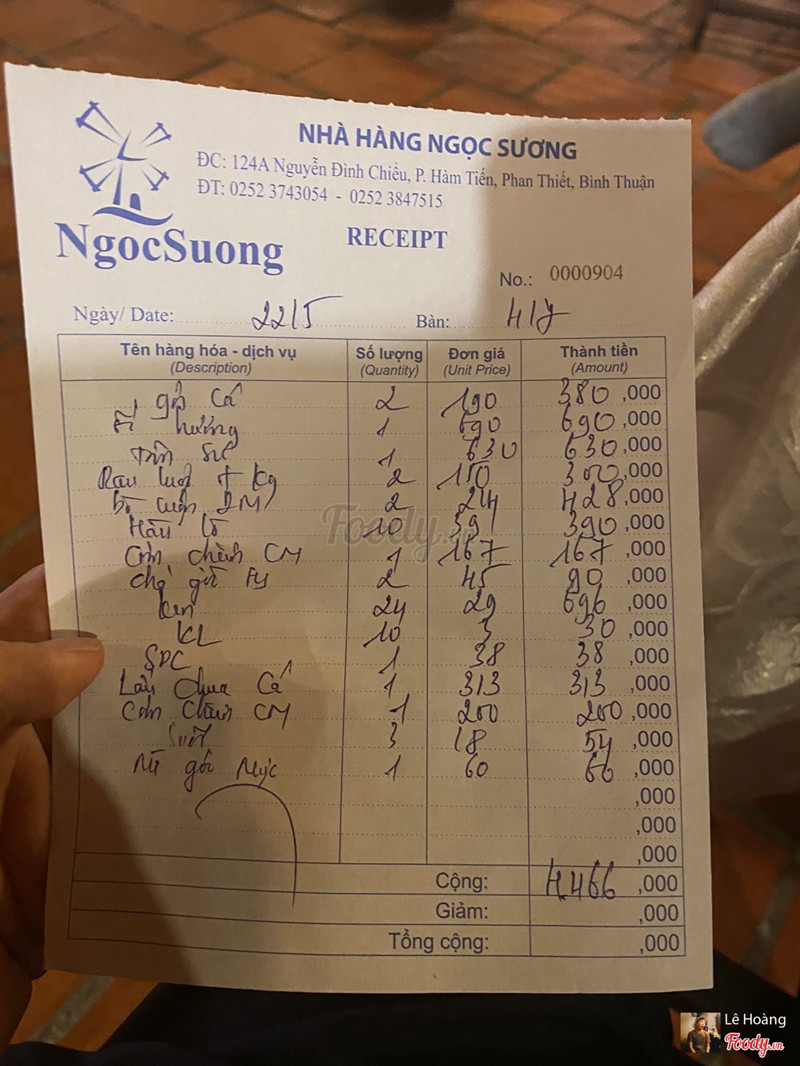 NHÀ HÀNG NGỌC SƯƠNG
ĐC: 124A Nguyễn Đình Chiểu, P. Hàm Tiến, Phan Thiết, Bình Thuận
ĐT: 0252 3743054 - 0252 3847515
NgocSuong
RECEIPT
No.: 0000904
Ngày/ Date: 22/5 Bàn:
Tên hàng hóa - dịch vụ Số lượng Đơn giá Thành tiền
(Description) (Quantity) (Unit Price) (Amount)
gỏi Cá 2 190 380 ,000
hương 1 690 690 ,000
Tôm Sú 1 630 630 ,000
Rau luộc + Kg 2 150 300 ,000
bò cuộn 2M 2 214 428 ,000
Hàu lò 10 39 390 ,000
Cơm chiên CM 1 167 167 ,000
chả giò 2 45 90 ,000
Ken 24 29 696 ,000
KL 10 3 30 ,000
SDC 1 38 38 ,000
Lẩu chua Cá 1 313 313 ,000
Cơm Chiên CM 1 200 200 ,000
Suối 3 18 54 ,000
Mì gói Mực 1 60 60 ,000
,000
,000
,000
Cộng: 4.466 ,000
Giảm: ,000
Tổng cộng: ,000
Foody.vn
Lê Hoàng
Foody.vn